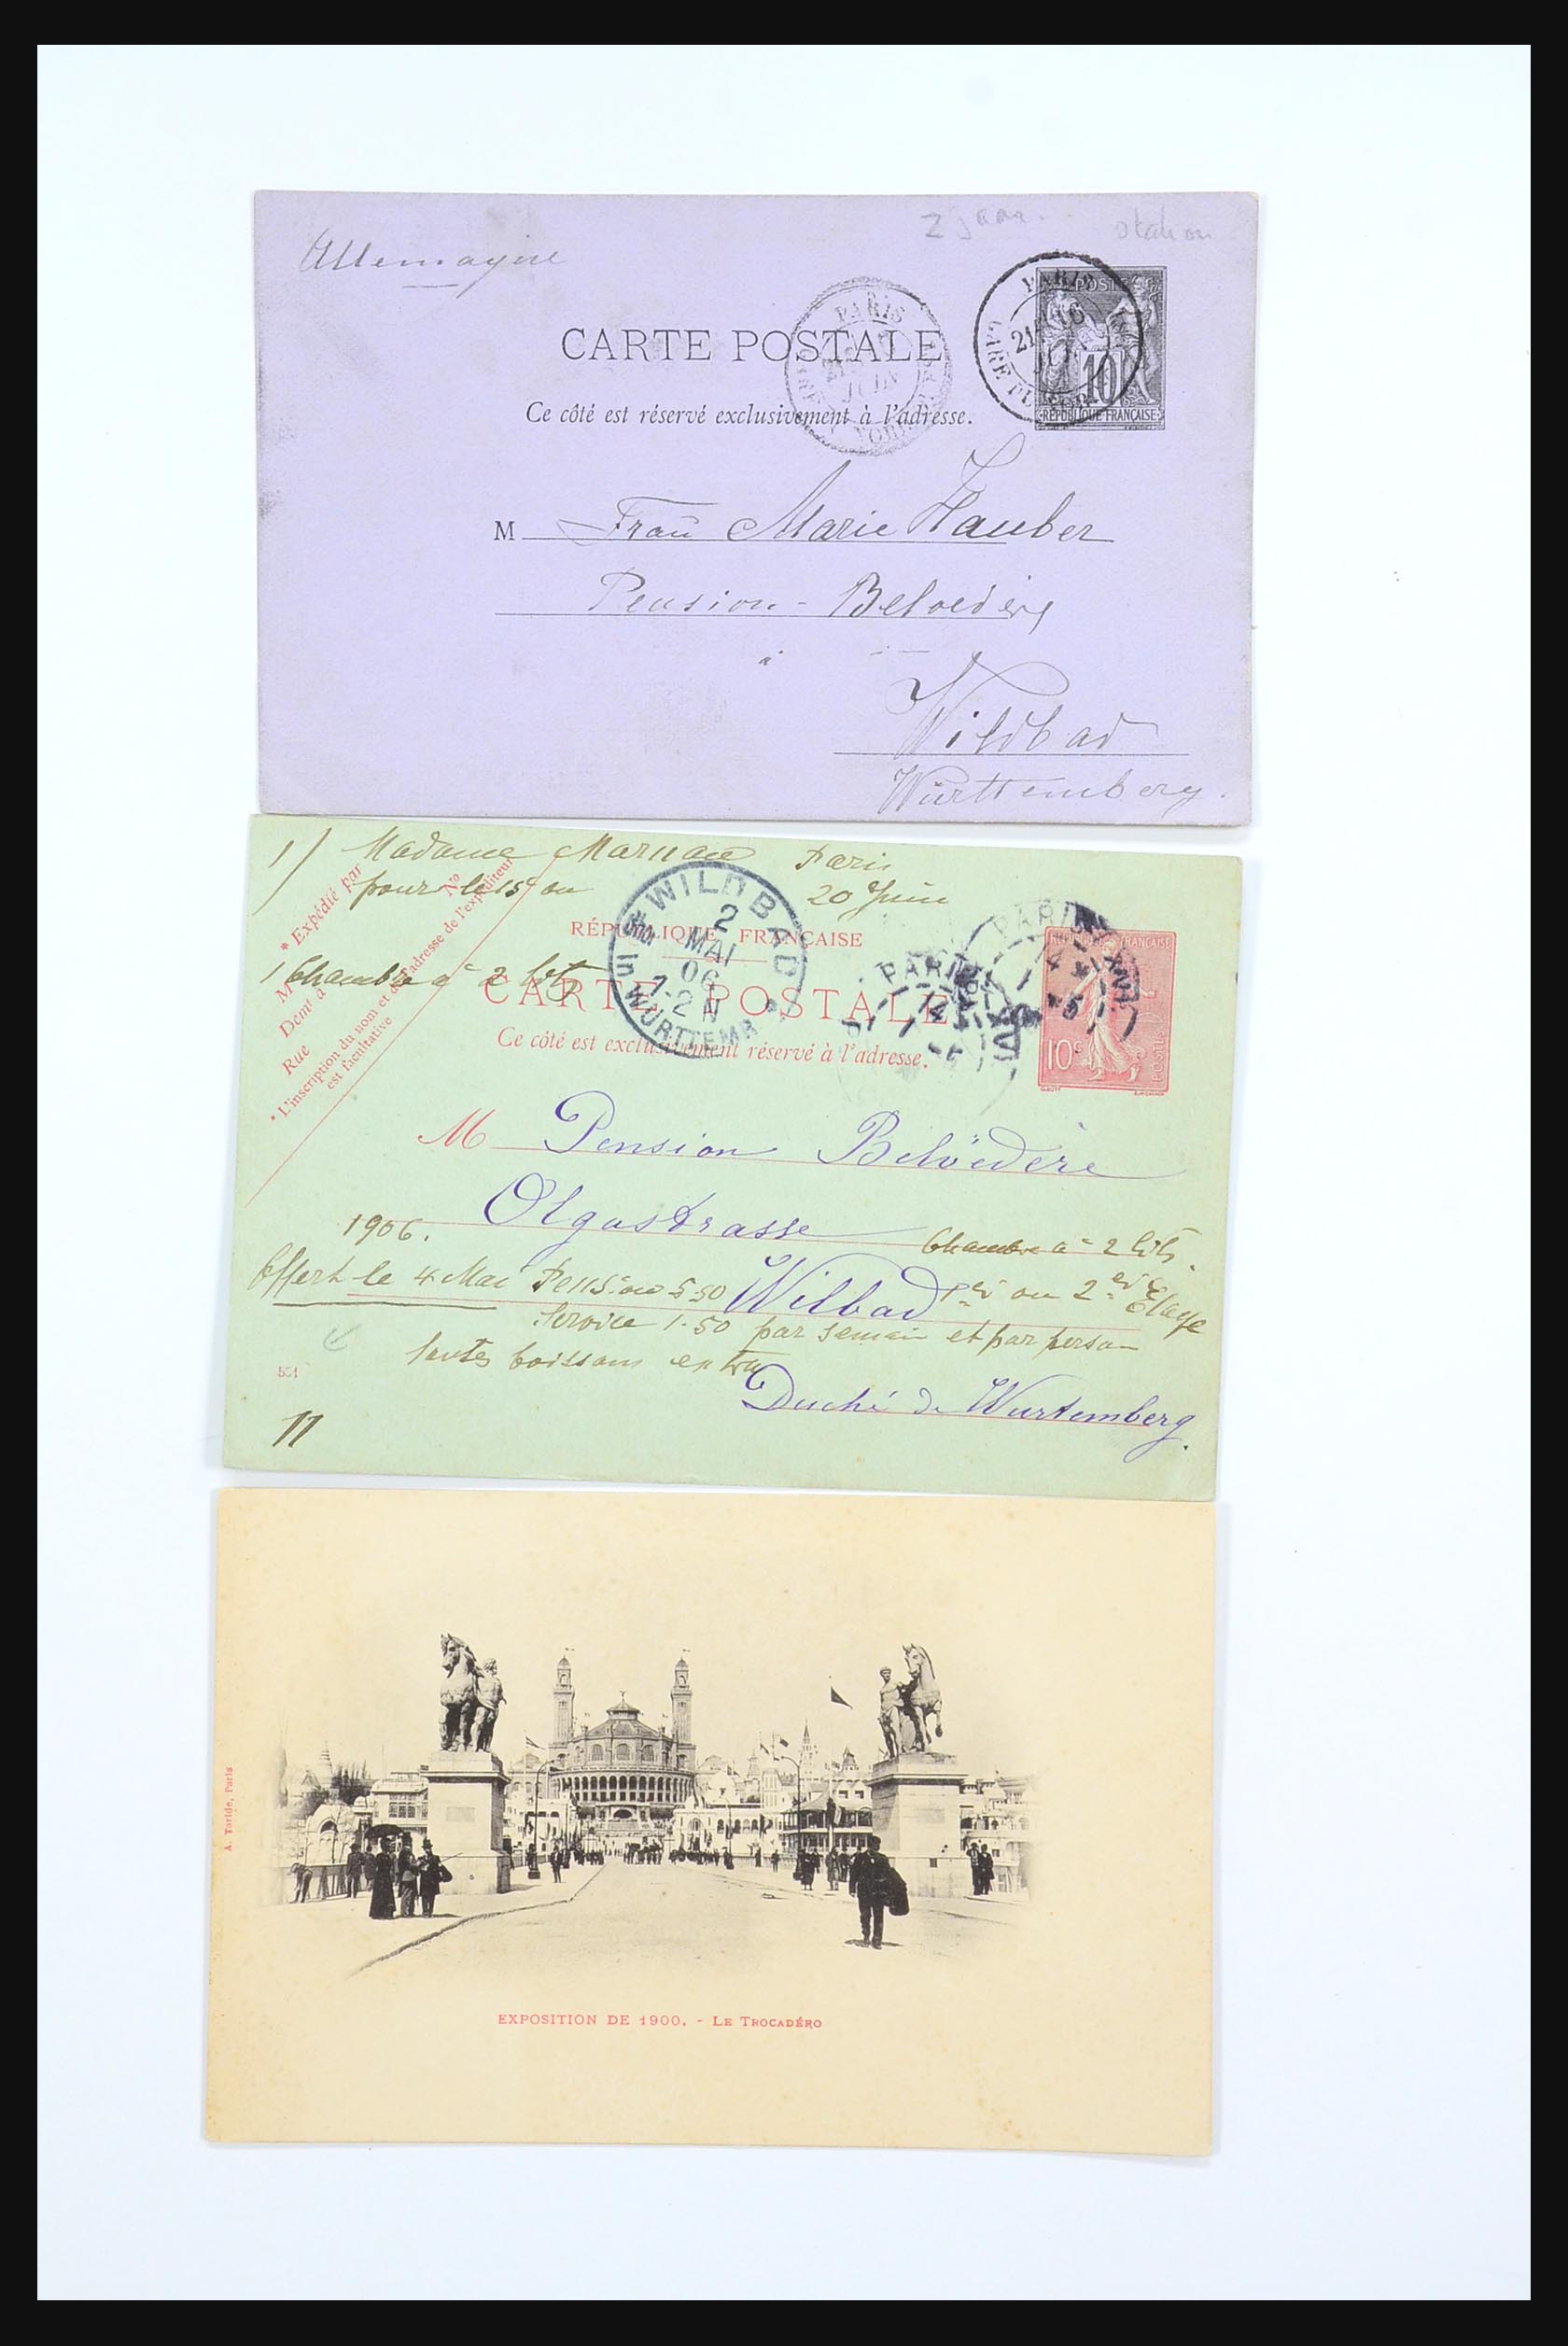 2 jaar.
station
Allemagne
PARIS
POSTES
CARTE POSTALE
10
RÉPUBLIQUE FRANÇAISE
PARIS
JUIN
Ce côté est réservé exclusivement à l'adresse.
M Frau Marie Hauber
Pension - Belvedère
à
Wildbad
Württemberg.
1/ Madame Paris
pour le 15 ou 20 Juin
1 Chambre a 2 lits
* Expédié par
M
Demt à
Rue
No
* L'inscription du nom et de l'adresse de l'expéditeur
est facultative
RÉPUBLIQUE FRANÇAISE
CARTE POSTALE
Ce côté est exclusivement réservé à l'adresse.
WILDBAD
2
MAI
06
7-2 N
WÜRTTEMB
PARIS
PARIS
10c
POSTES
M Pension Belvédère
Olgastrasse
1906.
Chambre a 2 lits
Offert le 4 Mai Pension 5.50
Wilbad
1er ou 2 Etage
Service 1.50 par semain et par person
toutes boissons extra
Duché de Wurtemberg.
551
11
A. Taride, Paris
EXPOSITION DE 1900. - LE TROCADÉRO